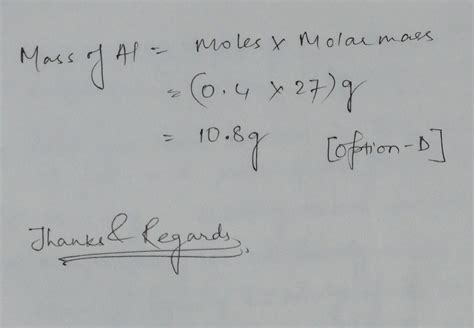 Mass of Al = moles x Molar mass
= (0.4 x 27)g
= 10.8g [option-D]
Thanks & Regards,